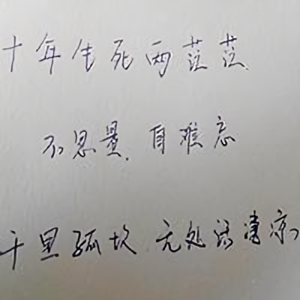 十年生死两茫茫
不思量,自难忘
千里孤坟 无处话凄凉